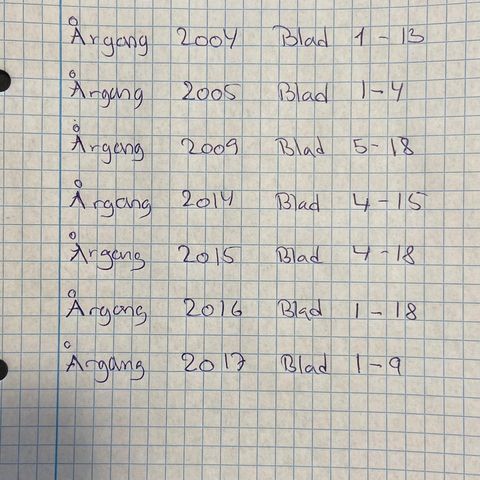 Årgang 2004 Blad 1-13
Årgang 2005 Blad 1-4
Årgang 2009 Blad 5-18
Årgang 2014 Blad 4-15
Årgang 2015 Blad 4-18
Årgang 2016 Blad 1-18
Årgang 2017 Blad 1-9